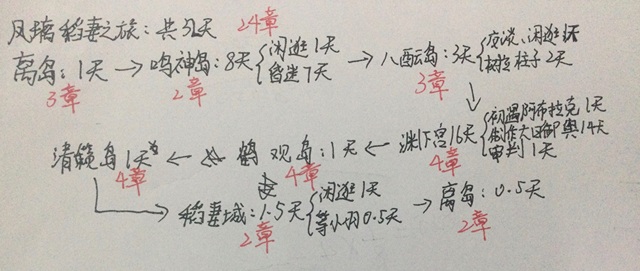 风璃稻妻之旅:共32天 24章
离岛:1天→鸣神岛:8天{闲逛1天 昏迷7天→八酝岛:3天{夜谈、闲逛1天 树拉柱子2天
3章 2章 3章
清籁岛1天←鹤观岛:1天←渊下宫16天{初遇阿布拉克1天 制作大日御舆14天 审判1天
4章 4章 4章
→稻妻城:1.5天{闲逛1天 等小羽0.5天→离岛:0.5天
2章 2章